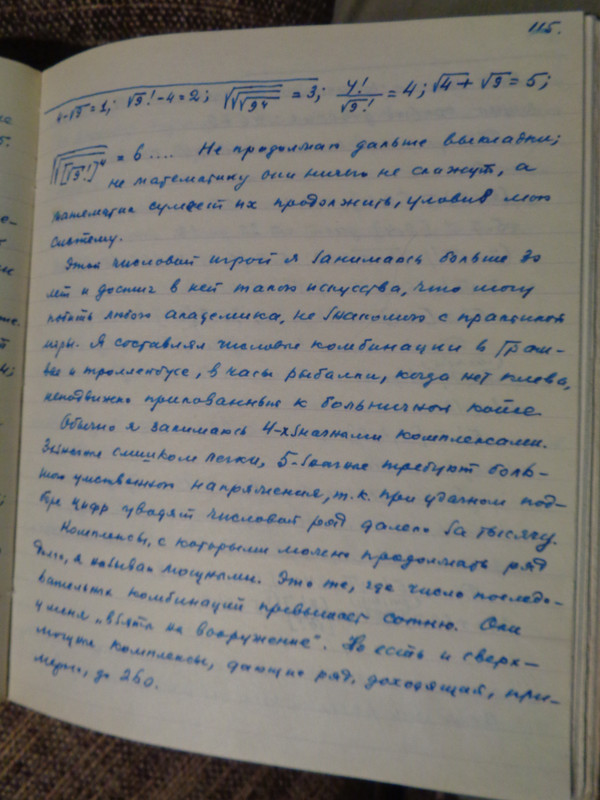 115.
4-√9=1; √9!-4=2; √√√9⁴ = 3; 4!/√9! = 4; √4+√9=5;
√[√9!]⁴ = 6.... Не продолжаю дальше выкладки;
не математику они ничего не скажут, а
математик сумеет их продолжить, уловив мою
систему.
Этой числовой игрой я занимаюсь больше 30
лет и достиг в ней такого искусства, что могу
побить любого академика, не знакомого с практикой
игры. Я составлял числовые комбинации в трам-
вае и троллейбусе, в часы рыбалки, когда нет клева,
неподвижно прикованным к больничной койке.
Обычно я занимаюсь 4-х значными комплексами.
3-значные слишком легки, 5-значные требуют боль-
шого умственного напряжения, т.к. при удачном под-
боре цифр уводят числовой ряд далеко за тысячу.
Комплексы, с которыми можно продолжать ряд
долго, я называю мощными. Это те, где число последо-
вательных комбинаций превышает сотню. Они
у меня „взяты на вооружение". Но есть и сверх-
мощные комплексы, дающие ряд, доходящий, при-
мерно, до 260.